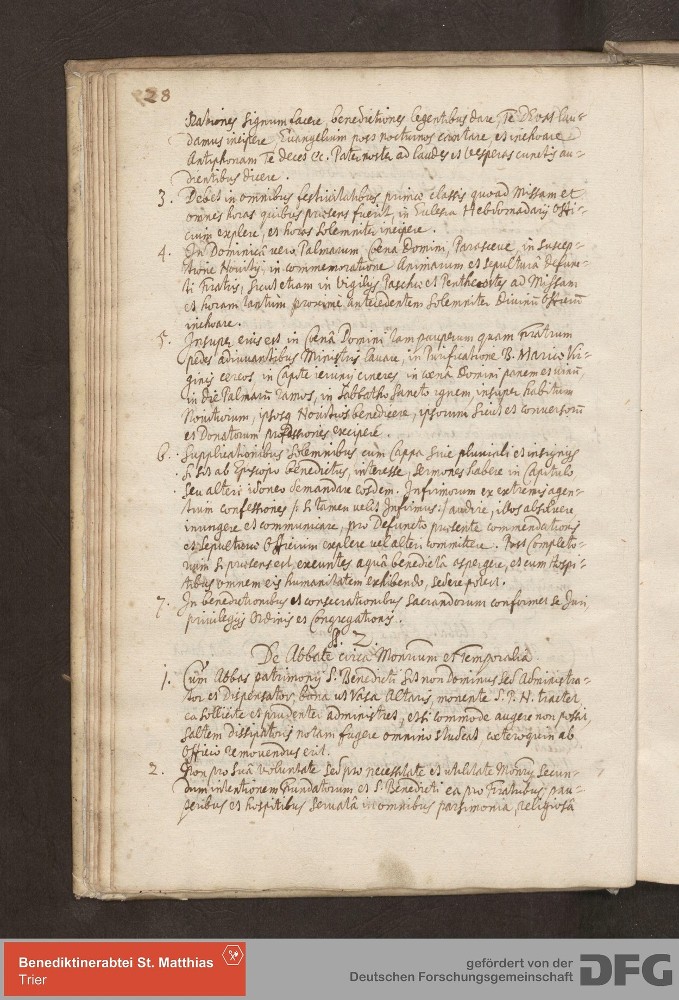 228
Rationes signum facere, benedictiones legentibus dare, Te DEUM lau-
damus incipere, Evangelium post nocturnos cantare, et inchoare
Antiphonam Te decet &c. Pater noster ad laudes et Vesperas cunctis au-
dientibus dicere.
3. Debet in omnibus festivitatibus primæ classis quoad Missam et
omnes horas quibus præsens fuerit, in Ecclesia Hebdomadarij offi-
cium explere, et horas solemniter incipere.
4. In Dominicâ vero Palmarum, Cœna Domini, Parasceve, in suscep-
tione Novitij, in commemoratione Animarum et sepulturâ defunc-
ti Fratris, sicut etiam in Vigilijs Paschæ et Penthecostes ad Missam
et horam tantum proxime antecedentem solemniter Divinū Officiū
inchoare.
5. Insuper eius est in Cœnâ Domini tam pauperum quam Fratrum
pedes adiuvantibus Ministris lavare, in Purificatione B. Mariæ Vir-
ginis cereos, in Capite ieiunij cineres, in cœnâ Domini panem et vinū
in die Palmarū ramos, in Sabbatho Sancto ignem, insuper habitum
Novitiorum, ipsosq Novitios benedicere, ipsorum sicut et conversorū
et Donatorum professiones excipere.
6. Supplicationibus solemnibus cum Cappa sive pluviali et insignijs
si sit ab Episcopo benedictus, interesse, sermones habere in Capitulo
seu alteri idoneo demandare eosdem. Infirmorum ex extremis agen-
tium confessiones /: si tamen velit Infirmus :/ audire, illos absolvere,
inungere et communicare, pro Defuncto præsente commendationis
et sepulturæ officium explere vel alteri committere. Post Completo-
rium si præsens est, exeuntes aquâ benedictâ aspergere, et cum Hospi-
tibus omnem eis humanitatem exhibendo, sedere potest.
7. In benedictionibus et consecrationibus sacrandorum conformet se Juri,
privilegijs Ordinis et Congregationis.
§. 2.
De Abbate circa Monrium et Temporalia
1. Cum Abbas patrimonij S. Benedicti sit non Dominus sed Administra-
tor et Dispensator, bona ut Vasa Altaris, monente S. P. N. tractet
ea sollicite et prudenter administret, et si commode augere non possit,
saltem dissipatoris notam fugere omnino studeat cæteroquin ab
Officio removendus erit.
2. Non pro suâ voluntate sed pro necessitate et utilitate Monrij secun-
dum intentionem Fundatorum et S. Benedicti ea pro Fratribus, pau-
peribus et hospitibus servatâ in omnibus parsimonia, religiosâ
Benediktinerabtei St. Matthias
Trier
gefördert von der
Deutschen Forschungsgemeinschaft
DFG